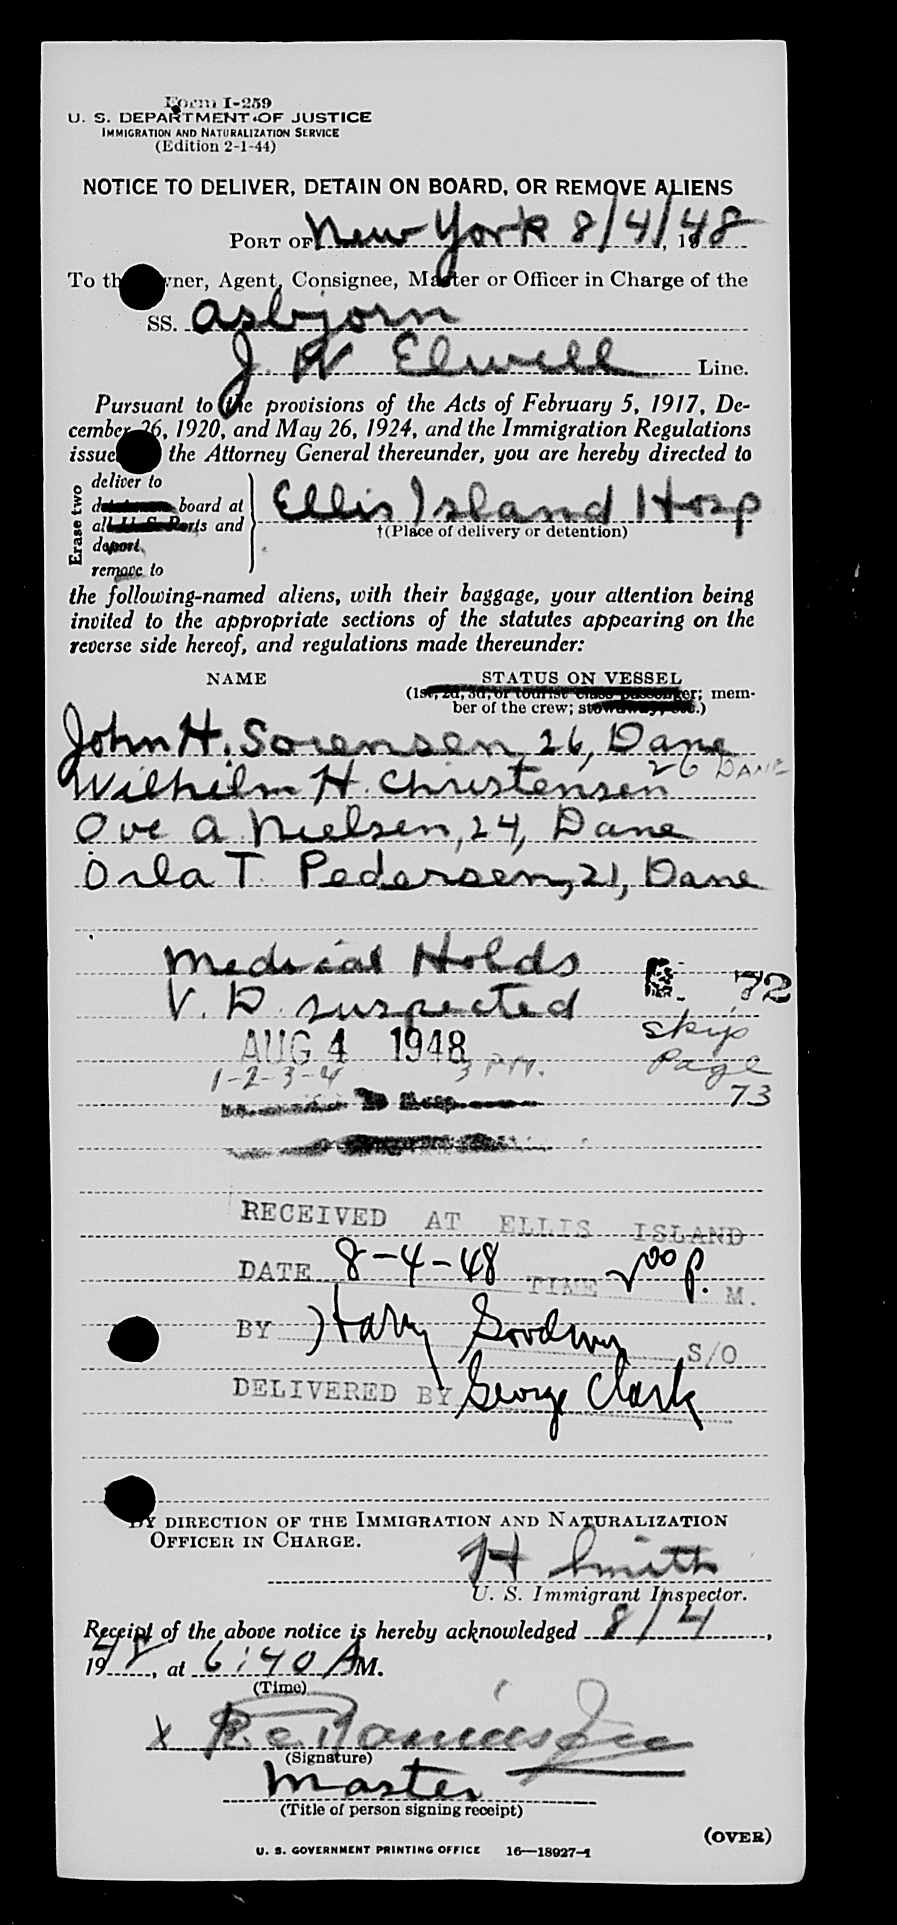 Form I-259
U. S. DEPARTMENT OF JUSTICE
IMMIGRATION AND NATURALIZATION SERVICE
(Edition 2-1-44)
NOTICE TO DELIVER, DETAIN ON BOARD, OR REMOVE ALIENS
PORT OF New York 8/4/, 1948
To the Owner, Agent, Consignee, Master or Officer in Charge of the
SS. Asbjorn
J. W Elwell Line.
Pursuant to the provisions of the Acts of February 5, 1917, De-
cember 26, 1920, and May 26, 1924, and the Immigration Regulations
issued the Attorney General thereunder, you are hereby directed to
Erase two
deliver to
board at
all U. S. Ports and
deport
remove to
Ellis Island Hosp
†(Place of delivery or detention)
the following-named aliens, with their baggage, your attention being
invited to the appropriate sections of the statutes appearing on the
reverse side hereof, and regulations made thereunder:
NAME STATUS ON VESSEL
(1st, 2d, 3d, or tourist class passenger; mem-
ber of the crew; stowaway, etc.)
John H. Sorensen, 26, Dane
Wilhilm H. Christensen 26 DANE
Ove A. Nielsen, 24, Dane
Orla T. Pedersen, 21, Dane
Medical Holds
V. D. suspected 72
AUG 4 1948 skip
1-2-3-4 3 PM. Page
73
RECEIVED AT ELLIS ISLAND
DATE 8-4-48 TIME 200 P. M.
BY Harry Goodwin S/O
DELIVERED BY George Clark
BY DIRECTION OF THE IMMIGRATION AND NATURALIZATION
OFFICER IN CHARGE.
H Smith
U. S. Immigrant Inspector.
Receipt of the above notice is hereby acknowledged 8/4,
1948, at 6:40 AM.
(Time)
X
(Signature)
Master
(Title of person signing receipt)
(OVER)
U. S. GOVERNMENT PRINTING OFFICE 16—18927-1